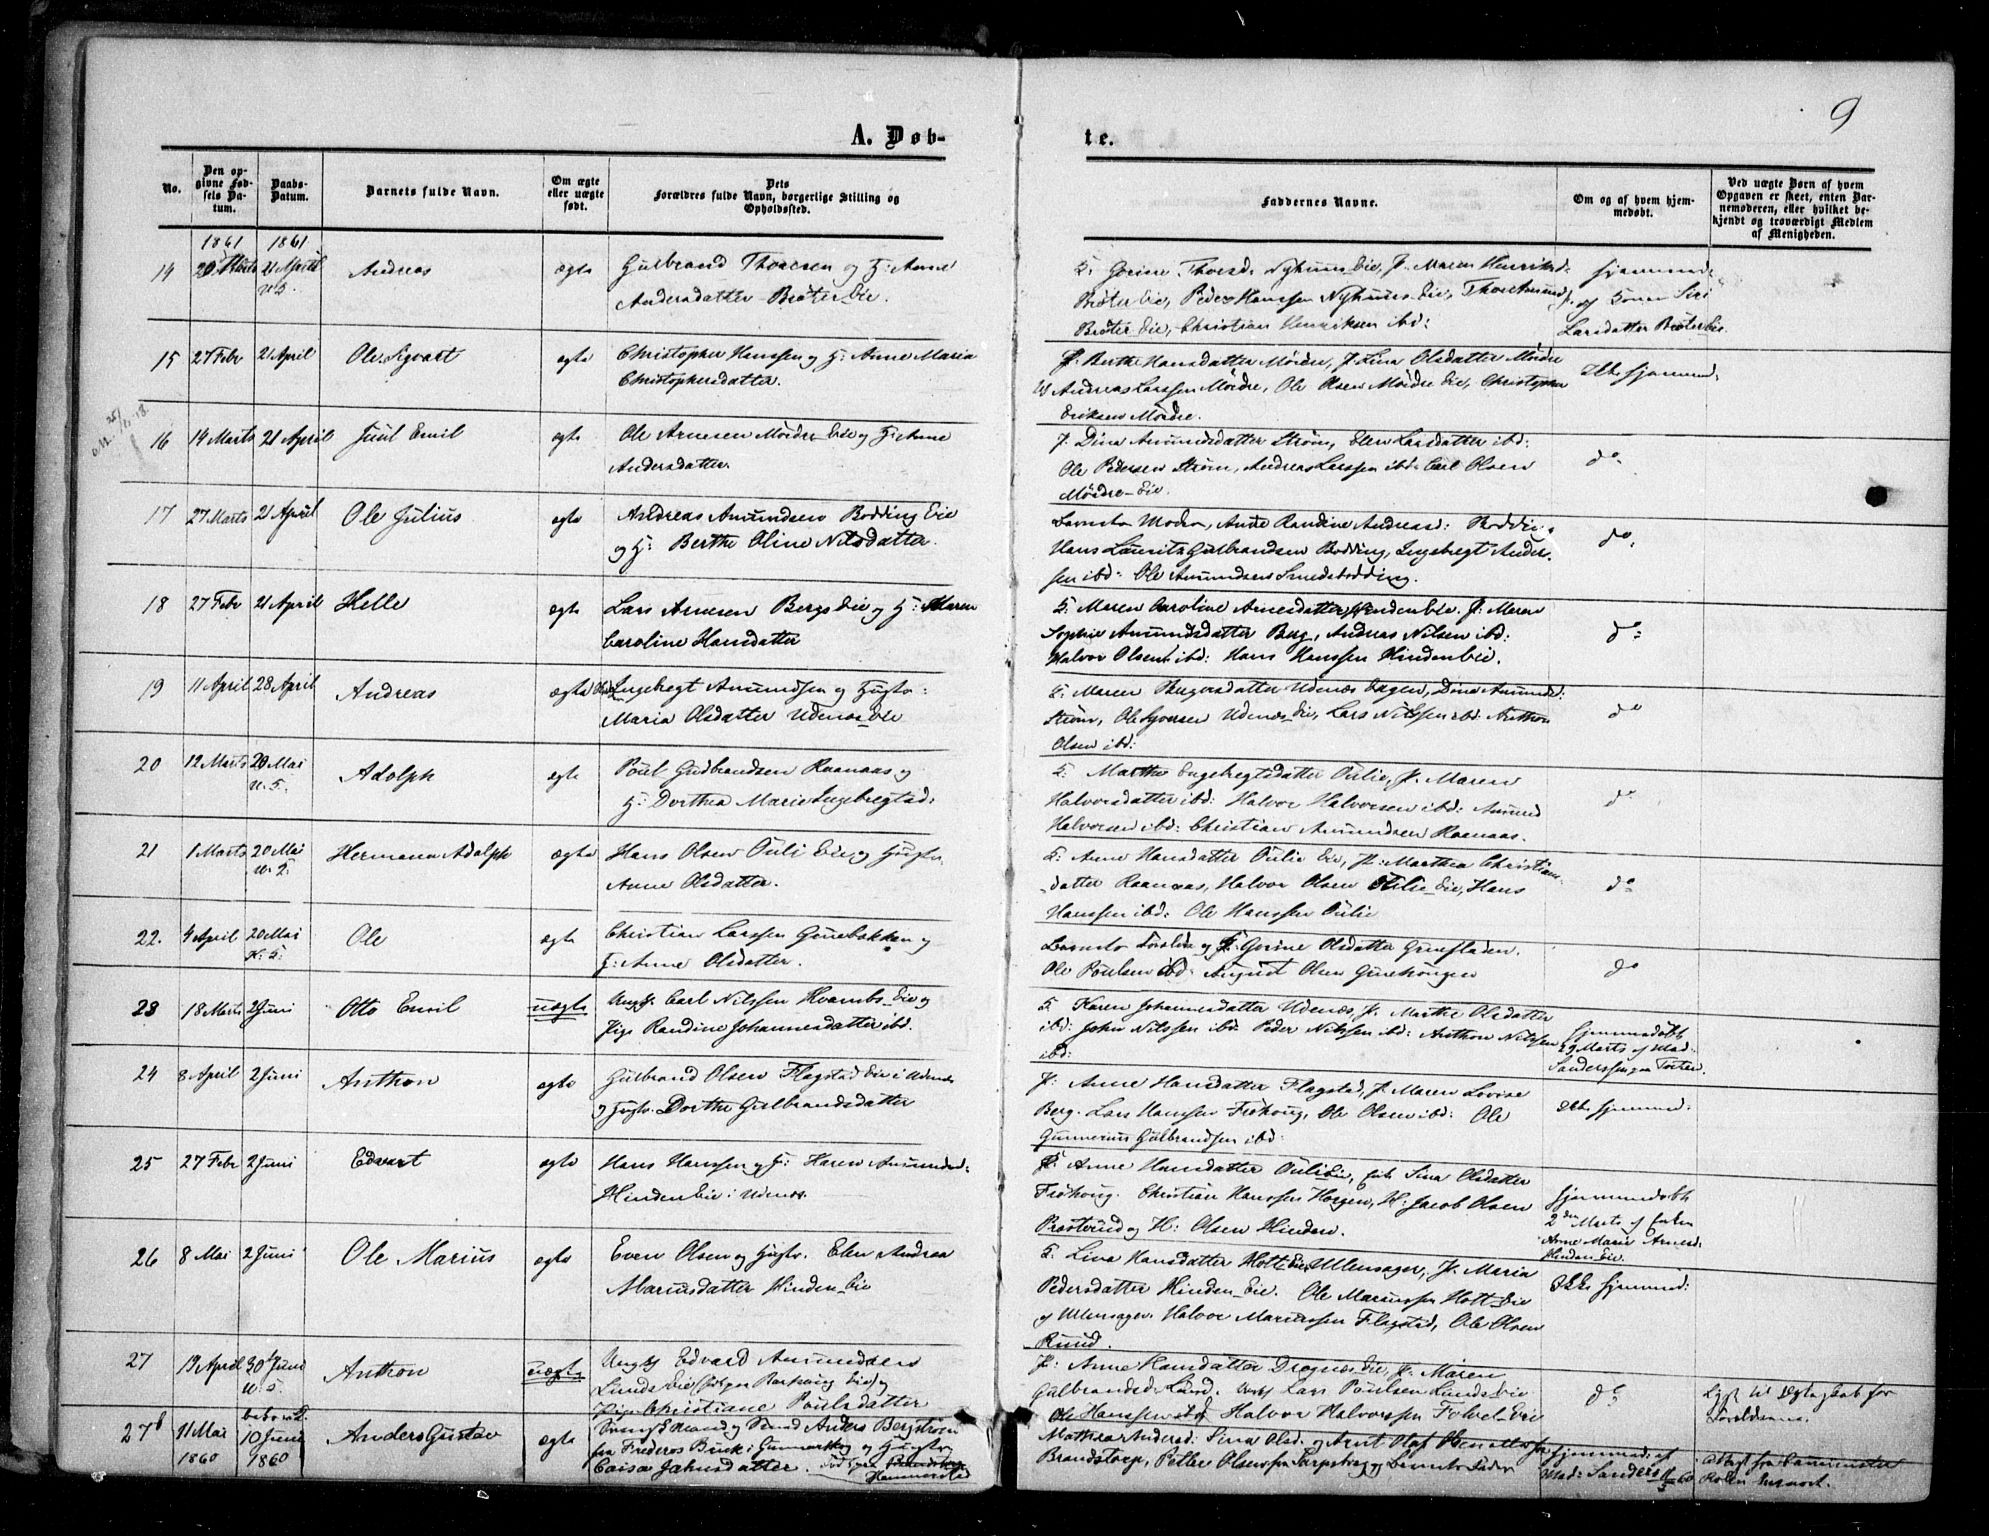 9
A. Døb-
te.
No.
Den op-
givne Fød-
sels Da-
tum.
Daabs-
Datum.
Barnets fulde Navn.
Om ægte
eller uægte
født.
Dets
Forældres fulde Navn, borgerlige Stilling og
Opholdssted.
Faddernes Navne.
Om og af hvem hjem-
medøbt.
Ved uægte Børn af hvem
Opgaven er skeet, enten Bar-
nemoderen, eller hvilket be-
kjendt og troværdigt Medlem
af Menigheden.
1861 1861
14 20 Marts 21 April Andreas ægte Gulbrand Thoresen og H: Anne
Andersdatter Brøter Eie.
Thorsd: Nyhuus Eie, P. Maren Henriksd:
Brøter Eie, Peder Hanssen Nyhuus Eie, Thore Amunds:
Brøter Eie, Christian Henriksen ibd:
hjemmed:
af Konen Siri
Larsdatter Brøter Eie.
15 27 Febr 21 April Ole Sigvart ægte Christopher Hanssen og H: Anne Maria
Christophersdatter.
P: Berthe Hansdatter Mørdre, P. Lina Olsdatter Mørdre
Andreas Larssen Mørdre, Ole Olsen Mørdre Eie, Christopher
Eriksen Mørdre.
Ikke hjemmed:
16 14 Marts 21 April Juul Emil ægte Ole Arnesen Mørdre Eie og H: Anne
Andersdatter.
P. Dina Amundsdatter Strøm, Elen Larsdatter ibd:
Ole Pedersen Strøm, Andreas Larssen ibd: Carl Olsen
Mørdre-Eie.
do
17 27 Marts 21 April Ole Julius ægte Andreas Amundsen Bodding Eie
og H: Berthe Oline Nilsdatter.
Barnets Moder, Anne Randine Andreasd: Bodding.
Hans Lauritz Gulbrandsen Bodding, Ingebregt Ander-
sen ibd: Ole Amundsen Smedsbodding.
do
18 27 Febr 21 April Helle ægte Lars Arnesen Bergs Eie og H: Maren
Caroline Hansdatter
K. Maren Caroline Arnesdatter Hinden Eie. P: Maren
Sophie Amundsdatter Berg, Andreas Nilsen ibd:
Halvor Olsen ibd: Hans Hanssen Hinden Eie.
do
19 11 April 28 April Andreas ægte Ingebregt Amundsen og Hustr:
Maria Olsdatter Udenæs Eie
K. Maren Udenæs Dina Amunds:
Strøm, Ole Syversen Udenæs Eie, Lars Nilssen ibd: Anthon
Olsen ibd:
do
20 12 Marts 20 Mai Adolph ægte Poul Gudbrandsen Raanaas og
H: Dorthea Marie Ingebregtsd:
K. Marthe Engebregtsdatter Oulie, P. Maren
Halvorsdatter ibd: Halvor Halvorsen ibd: Amund
Halvorsen ibd: Christian Amundsen Raanaas.
do
21 1 Marts 20 Mai Hermann Adolph ægte Hans Olsen Ouli Eie og Hustr.
Anne Olsdatter.
K. Anne Hansdatter Oulie Eie, P: Marthea Christian-
datter Raanaas, Halvor Olsen Oulie Eie, Hans
Hanssen ibd: Ole Hanssen Oulie
do
22. 4 April 20 Mai Ole ægte Christian Larssen Gunebakken og
H: Anne Olsdatter.
Barnets Forældre og Gorine Olsdatter
Ole Poulsen ibd: August Olsen
do
23 18 Marts 2 Juni Otto Emil uægte Ungk. Carl Nilssen Hvambs Eie og
Pige Randine Johannesdatter ibd.
K. Karen Johannesdatter Udenæs, P. Marthe Olsdatter
ibd: John Nilssen ibd: Peder Nilssen ibd: Anthon Nilssen
ibd:
hjemmedøbt
29 Marts af Mad:
Sanderssen
24 8 April 2 Juni Anthon ægte Gulbrand Olsen Flagstad Eie i Udenæs
og Hustr. Dorthe Gulbrandsdatter
P: Anne Hansdatter Flagstad, P. Maren Lovise
Berg. Lars Hanssen Frøhoug, Ole Olsen ibd: Ole
Gunnerius Gulbrandsen ibd:
Ikke hjemmed:
25 27 Febr 2 Juni Edvart ægte Hans Hanssen og H: Karen Amundsd:
Hinden Eie i Udenæs.
K. Anne Hansdatter Ouli Eie, Enke Sina Olsdatter
Frøhoug. Christian Hanssen Horgen, H: Jacob Olsen
Præsterud og H: Olsen Hinden.
hjemmedøbt
2den Marts af Enken
Anne Marie Arnesd:
Hinden Eie.
26 8 Mai 2 Juni Ole Marius ægte Even Olsen og Hustr. Elen Andrea
Mariusdatter Hinden Eie
K. Lina Hansdatter Holt Eie Ullensager, P. Maria
Pedersdatter Hinden Eie. Ole Mariussen Holt Eie
af Ullensager. Halvor Mariussen Flagstad, Ole Olsen
Ruud.
Ikke hjemmed:
27 19 April 30 Juni Anthon uægte Ungk. Edvard Amundsen
Lunds Eie og
Pige Christiane Poulsdatter
P: Anne Hansdatter Dragnæs Eie, P. Maren
Gulbrandsd. Lund. Ungk Lars Poulsen Lunds Eie
Ole Hanssen ibd Halvor Halvorssen Eie
do
Lyst til Ægteskab for
Forældrene.
27b 11 Mai 10 Juni Anders Gustav ægte Svensk Mand Anders Bergstrøm
fra Frederos Bruk i og Hustr.
Caisa Jahnsdatter.
1860 1860
Hammerstad
Mathea Andersd: Sina Olsd. og Arnt Olaf
Brandstorp, Petter Olsen fra Sarpsborg og Barnets Fader
hjemmed. af
Mad: Sanders